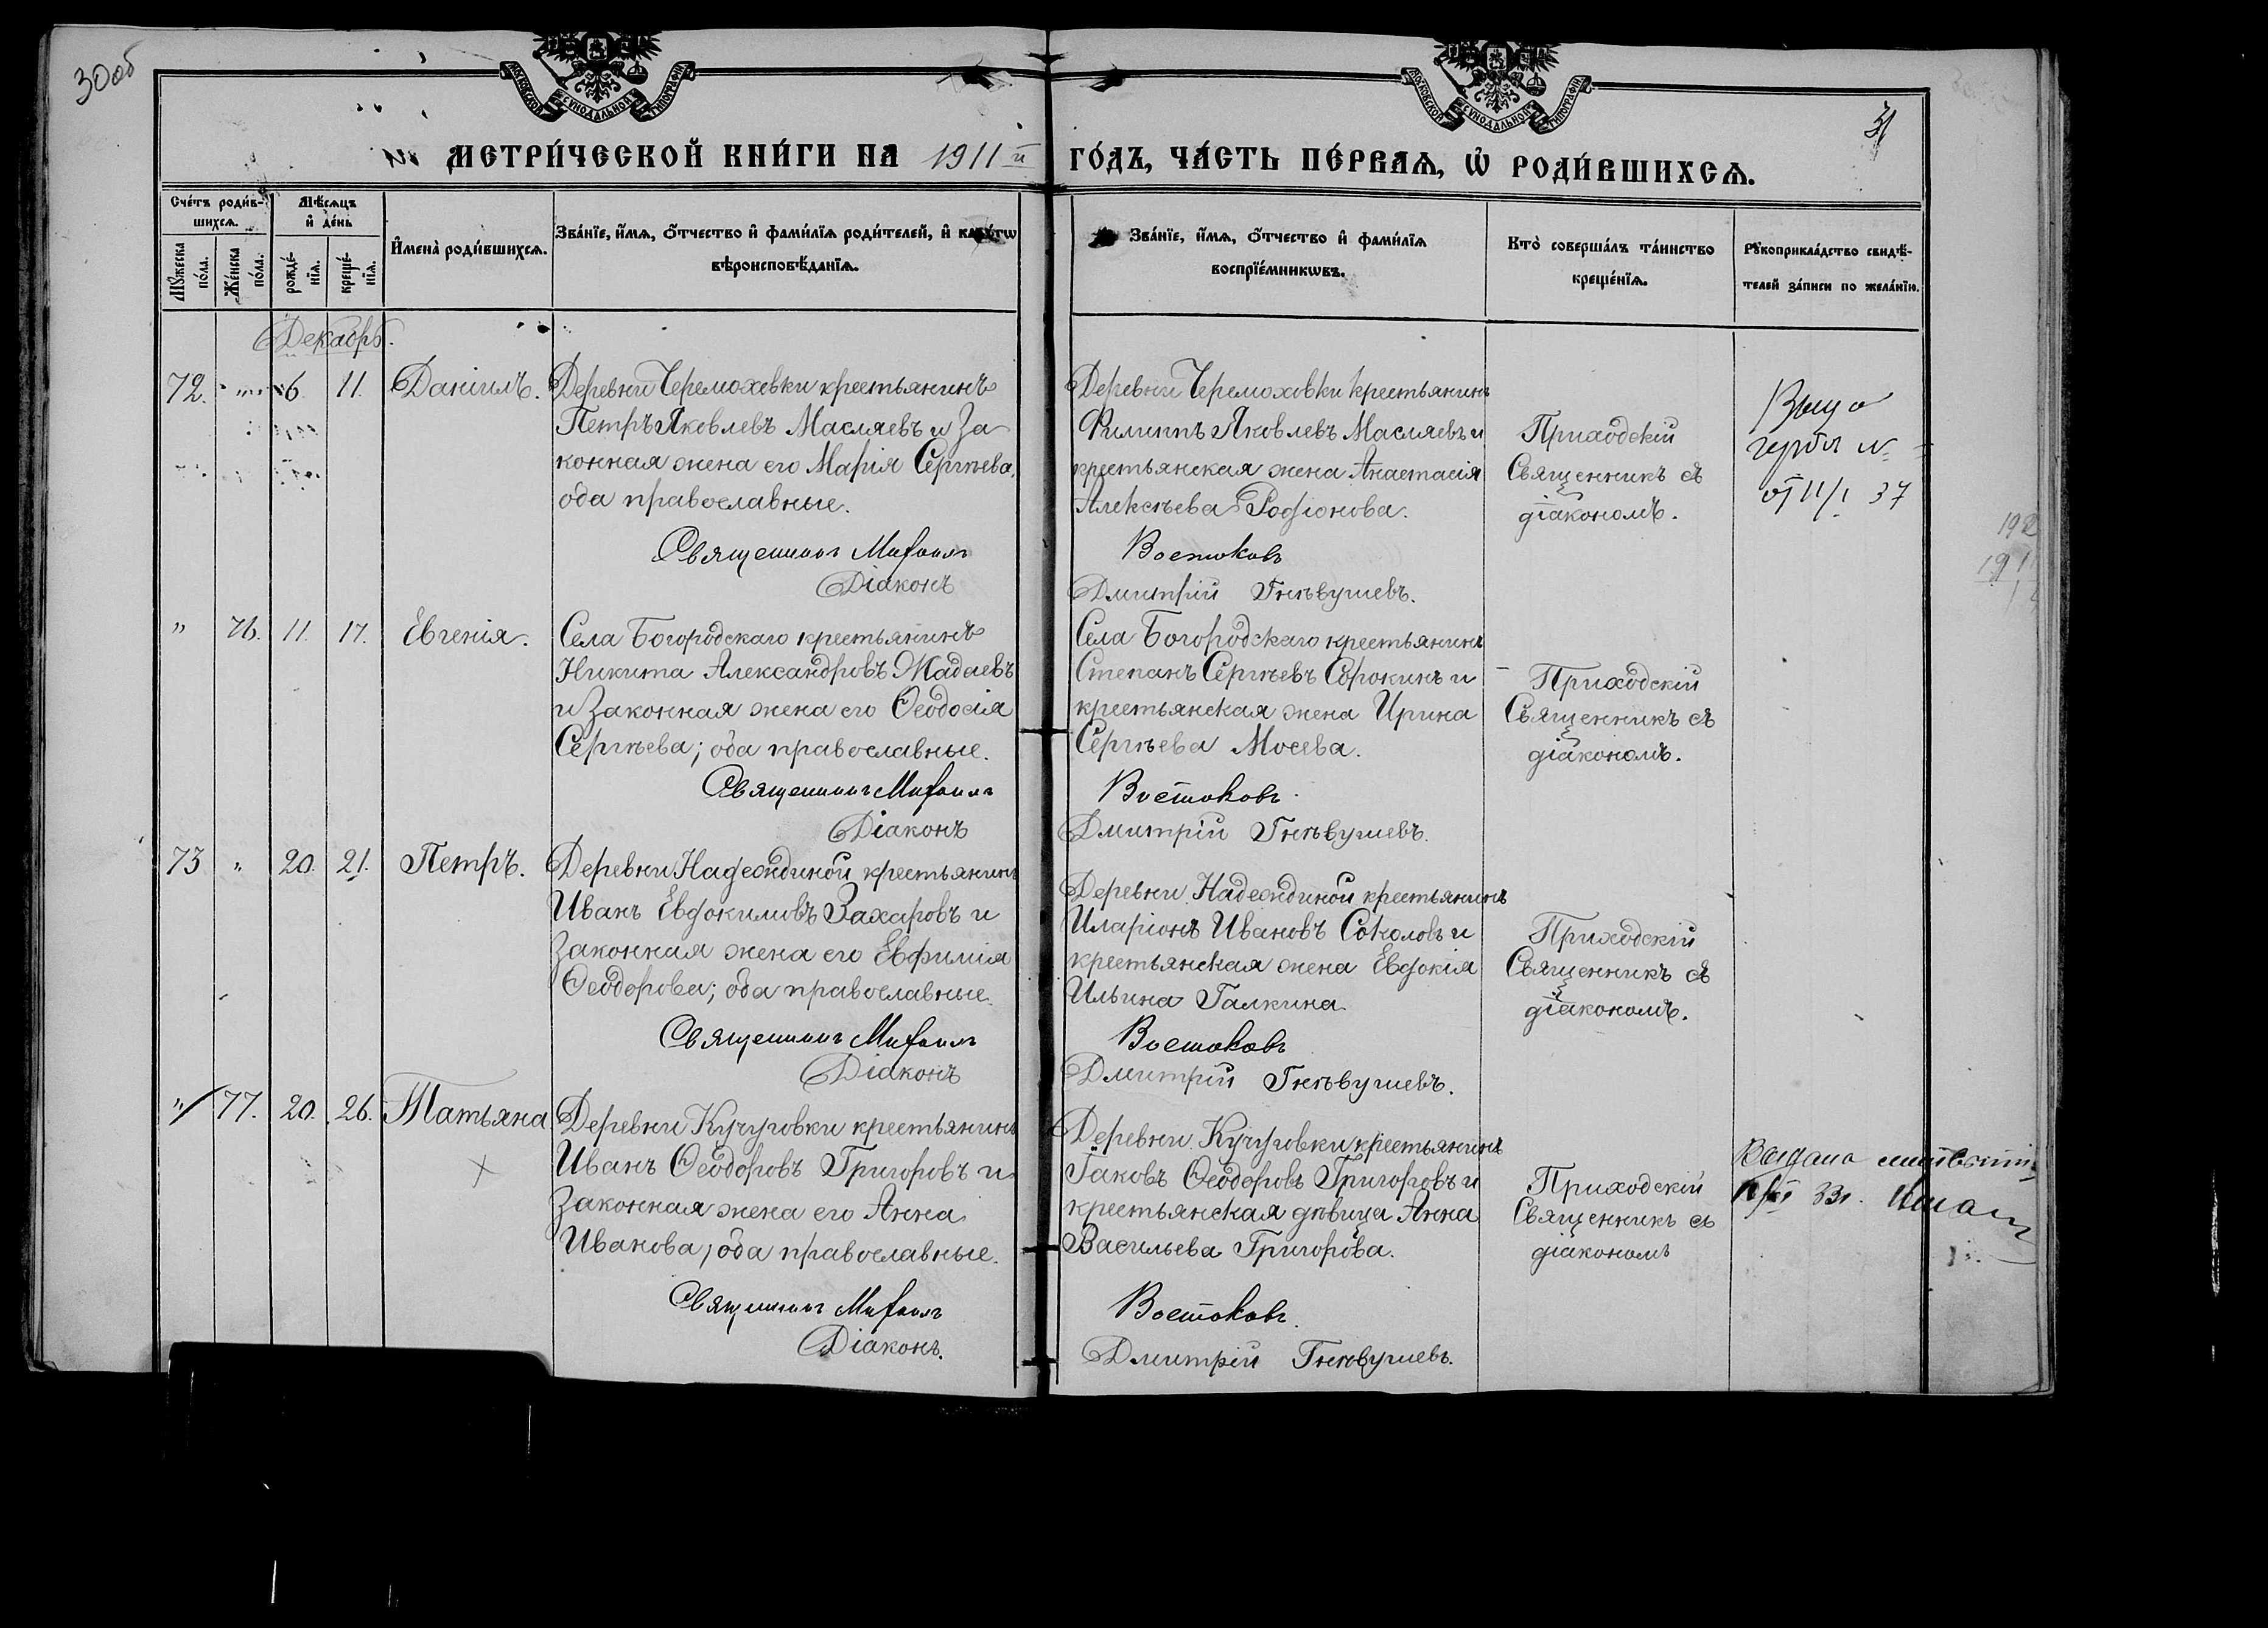 30об
МОСКОВСКОЙ СѴНОДАЛЬНОЙ ТИПОГРАФІИ
МОСКОВСКОЙ СѴНОДАЛЬНОЙ ТИПОГРАФІИ
31
МЕТРИ́ЧЕСКОЙ КНИ́ГИ НА 1911й ГО́ДЪ, ЧА́СТЬ ПЕ́РВАѦ, Ѡ҆ РОДИ́ВШИХСѦ.
Сче́тъ роди́в-
шихсѧ.
Мꙋ́жеска по́ла.
Же́нска по́ла.
Мѣ́сѧцъ
и҆ де́нь
рожде́-
нїѧ.
креще́-
нїѧ.
И҆мена̀ роди́вшихсѧ.
Зва́нїе, и҆́мѧ, о҆́тчество и҆ фами́лїѧ роди́телей, и҆ како́гѡ
вѣроисповѣ́данїѧ.
Зва́нїе, и҆́мѧ, о҆́тчество и҆ фами́лїѧ
воспрїе́мникѡвъ.
Кто̀ соверша́лъ та́инство
креще́нїѧ.
Рꙋкоприкла́дство свидѣ́-
телей за́писи по жела́нїю.
Декабрь.
72. 6 11. Даніилъ.
Деревни Черемоховки крестьянинъ
Петръ Яковлевъ Масляевъ и за
конная жена его Марія Сергѣева,
оба православные.
Священникъ Михаилъ
Діаконъ
Деревни Черемоховки крестьянинъ
Филиппъ Яковлевъ Масляевъ и
крестьянская жена Анастасія
Алексѣева Родіонова.
Востоковъ
Дмитрій Гнѣвушевъ.
Приходскій
Священникъ съ
діакономъ.
от 11/I 37
192
191
" 76. 11. 17. Евгенія.
Села Богородскаго крестьянинъ
Никита Александровъ Жадаевъ
и законная жена его Ѳеодосія
Сергѣева; оба православные.
Священникъ Михаилъ
Діаконъ
Села Богородскаго крестьянинъ
Степанъ Сергѣевъ Сорокинъ и
крестьянская жена Ирина
Сергѣева Мосева.
Востоковъ.
Дмитрій Гнѣвушевъ.
Приходскій
Священникъ съ
діакономъ.
73 " 20. 21. Петръ.
Деревни Надеждиной крестьянинъ
Иванъ Евдокимовъ Захаровъ и
законная жена его Евфимія
Ѳеодорова; оба православные.
Священникъ Михаилъ
Діаконъ
Деревни Надеждиной крестьянинъ
Иларіонъ Ивановъ Соколовъ и
крестьянская жена Евдокія
Ильина Галкина.
Востоковъ
Дмитрій Гнѣвушевъ.
Приходскій
Священникъ съ
діакономъ.
" 77. 20. 26. Татьяна
Деревни Кучуговки крестьянинъ
Иванъ Ѳеодоровъ Григоровъ и
законная жена его Анна
Иванова; оба православные.
Священникъ Михаилъ
Діаконъ.
Деревни Кучуговки крестьянинъ
Іаковъ Ѳеодоровъ Григоровъ и
крестьянская дѣвица Анна
Васильева Григорова.
Востоковъ.
Дмитрій Гнѣвушевъ.
Приходскій
Священникъ съ
діакономъ